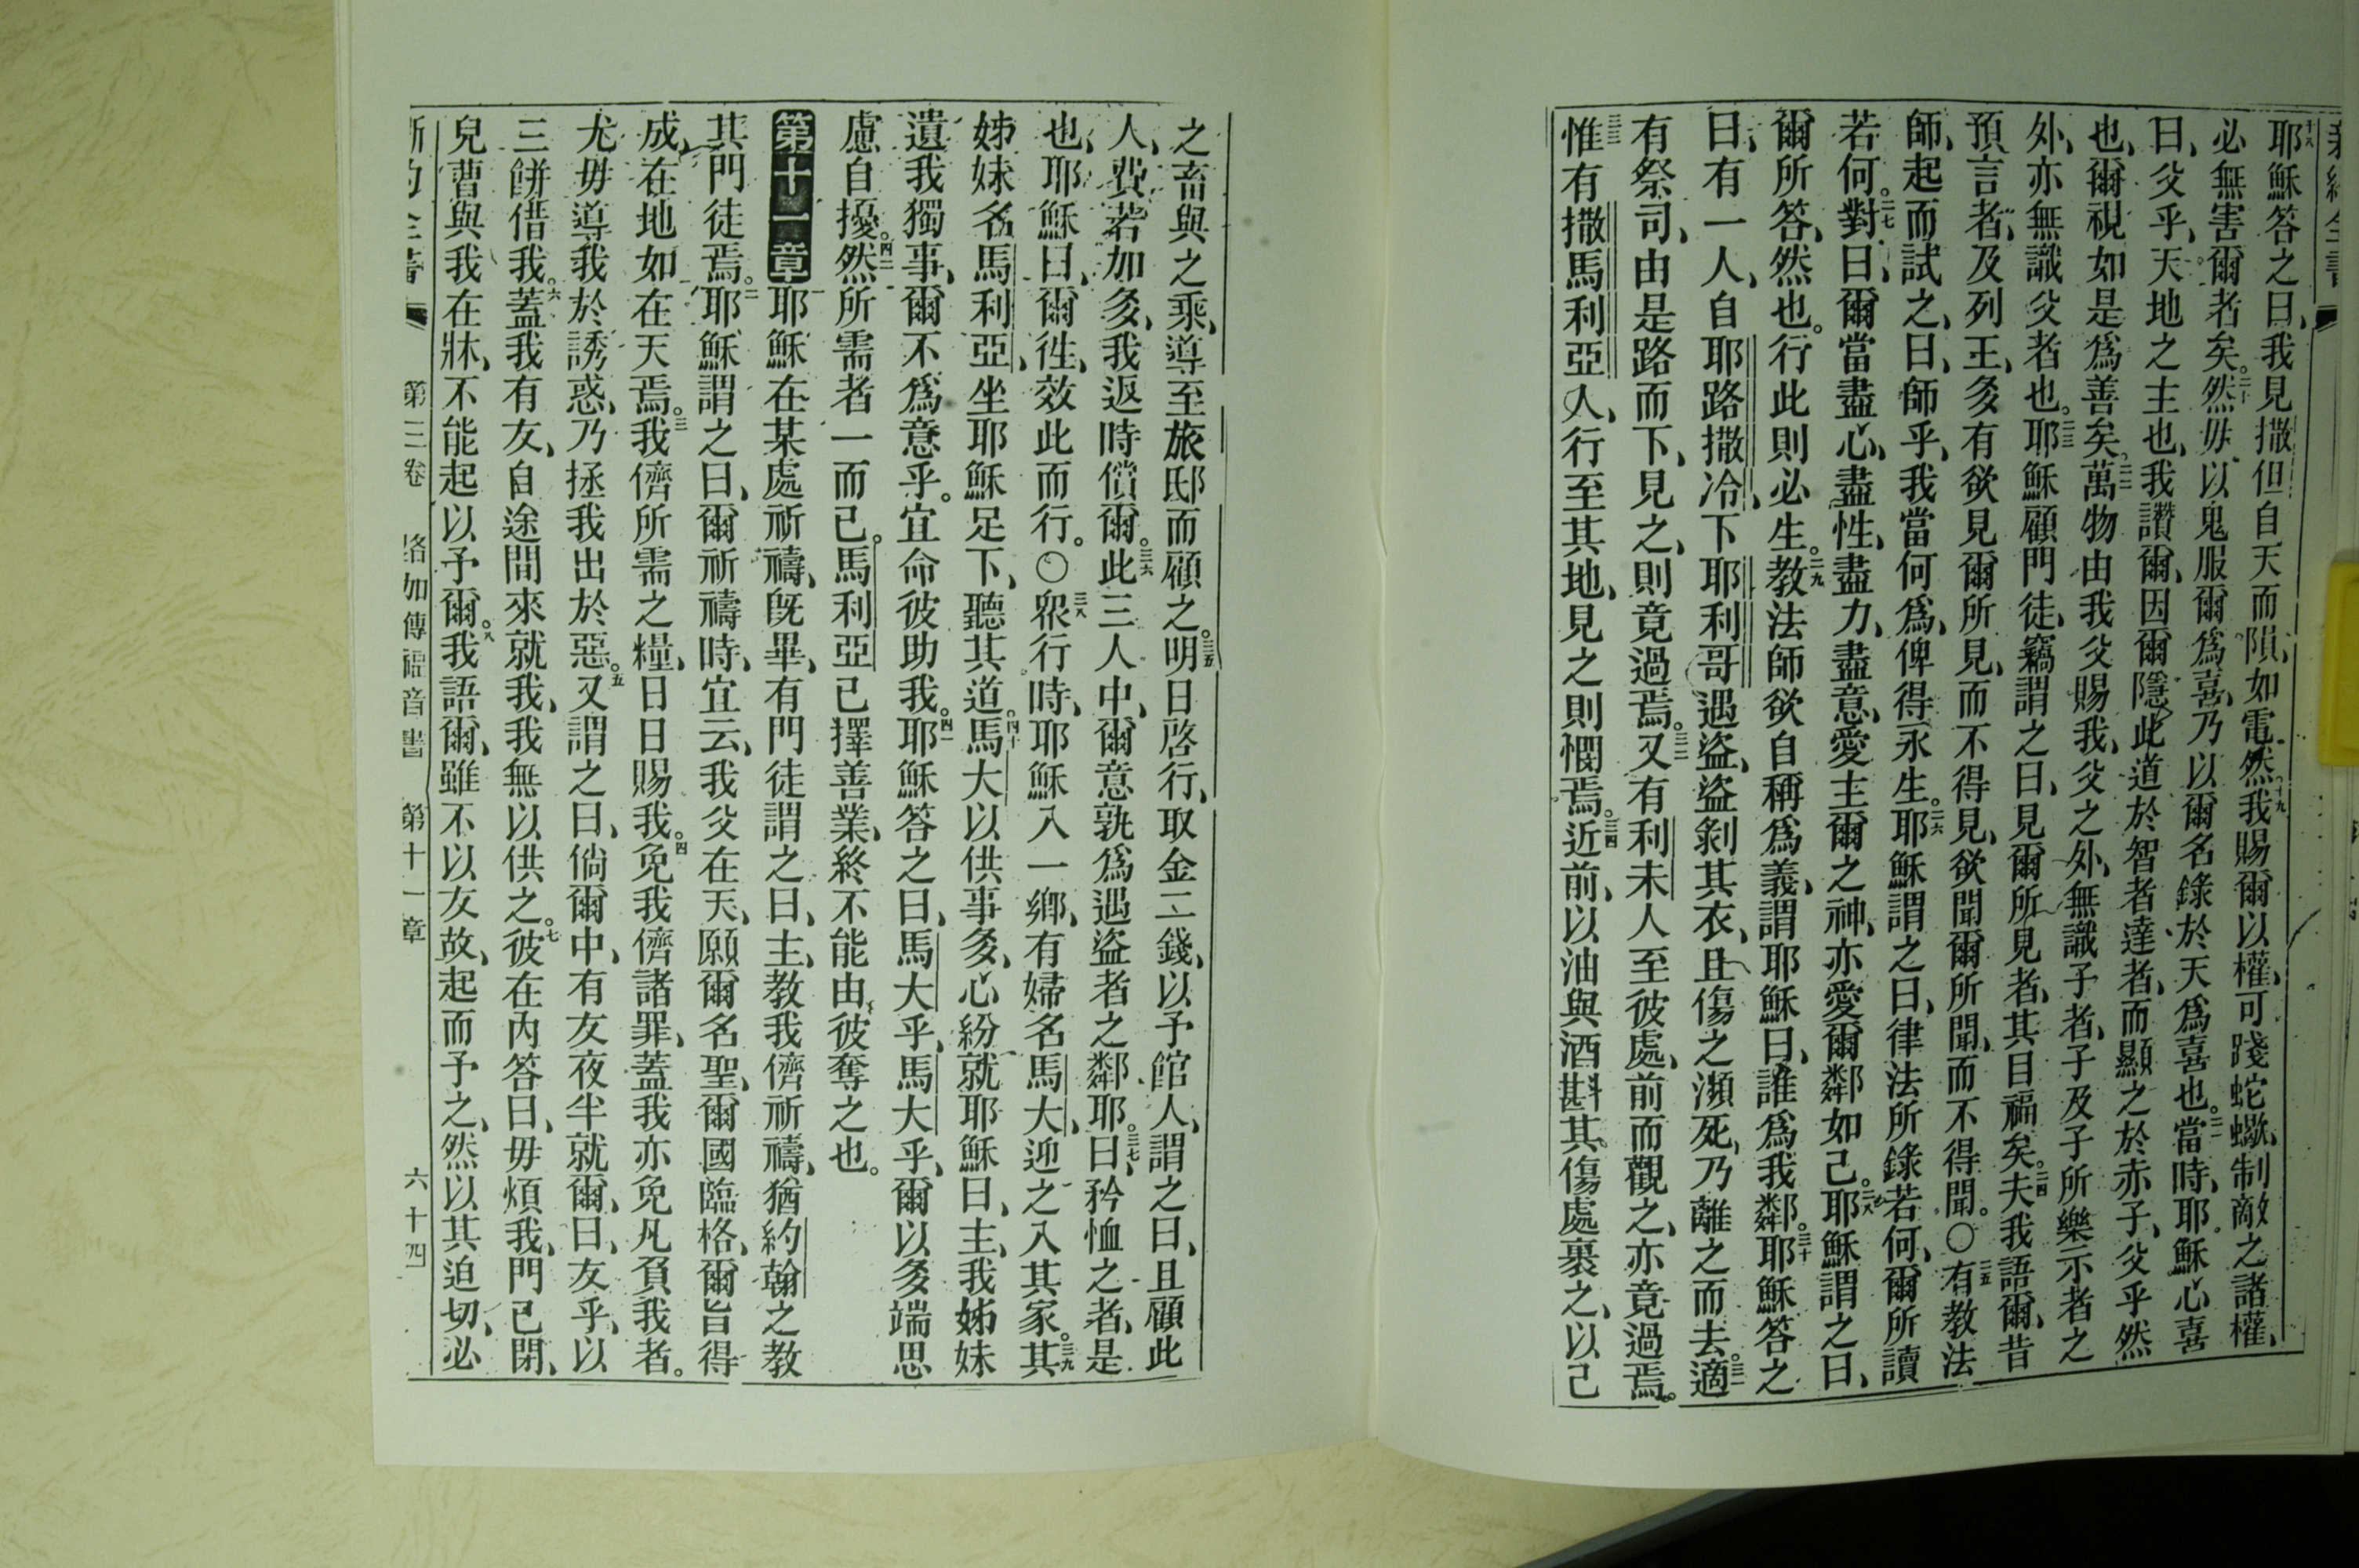 耶穌答之曰、我見撒但自天而隕、如電然。十九我賜爾以權、可踐蛇蠍、制敵之諸權、
必無害爾者矣。二十然毋以鬼服爾爲喜、乃以爾名錄於天爲喜也。二一當時、耶穌心喜
曰、父乎、天地之主也、我讚爾、因爾隱此道於智者達者、而顯之於赤子、父乎然
也、爾視如是爲善矣。二二萬物由我父賜我、父之外、無識子者、子及子所樂示者之
外、亦無識父者也。二三耶穌顧門徒、竊謂之曰、見爾所見者、其目福矣。二四夫我語爾、昔
預言者、及列王、多有欲見爾所見、而不得見、欲聞爾所聞、而不得聞。〇二五有教法
師、起而試之、曰、師乎、我當何爲、俾得永生。二六耶穌謂之曰、律法所錄若何、爾所讀
若何。二七對曰、爾當盡心、盡性、盡力、盡意、愛主爾之神、亦愛爾鄰如己。二八耶穌謂之曰、
爾所答、然也。行此則必生。二九教法師欲自稱爲義、謂耶穌曰、誰爲我鄰。三十耶穌答之
曰、有一人、自耶路撒冷、下耶利哥遇盜、盜剝其衣、且傷之瀕死、乃離之而去。三一適
有祭司、由是路而下、見之、則竟過焉。三二又有利未人至彼處、前而觀之、亦竟過焉。
三三惟有撒馬利亞人、行至其地、見之則憫焉。三四近前、以油與酒斟其傷處裹之、以己
之畜與之乘、導至旅邸而顧之。三五明日啓行、取金二錢、以予館人、謂之曰、且顧此
人、費若加多、我返時償爾。三六此三人中、爾意孰爲遇盜者之鄰耶。三七曰、矜恤之者、是
也、耶穌曰、爾徃、效此而行。〇三八衆行時、耶穌入一鄉、有婦名馬大、迎之入其家。三九其
姊妹名馬利亞、坐耶穌足下、聽其道。四十馬大以供事多、心紛就耶穌曰、主、我姊妹
遺我獨事、爾不爲意乎。宜命彼助我。四一耶穌答之曰、馬大乎、馬大乎、爾以多端思
慮自擾。四二然所需者一而已。馬利亞已擇善業、終不能由彼奪之也。
第十一章 耶穌在某處祈禱、旣畢、有門徒謂之曰、主、教我儕祈禱、猶約翰之教
其門徒焉。二耶穌謂之曰、爾祈禱時、宜云、我父在天、願爾名聖、爾國臨格、爾旨得
成、在地如在天焉。三我儕所需之糧、日日賜我。四免我儕諸罪、蓋我亦免凡負我者。
尤毋導我於誘惑、乃拯我出於惡。五又謂之曰、倘爾中、有友夜半就爾、曰、友乎、以
三餅借我。六蓋我有友、自途間來就我、我無以供之。七彼在內答曰、毋煩我、門已閉、
兒曹與我在牀、不能起以予爾。八我語爾、雖不以友故、起而予之、然以其迫切、必
第三卷 路加傳福音書 第十一章 六十四